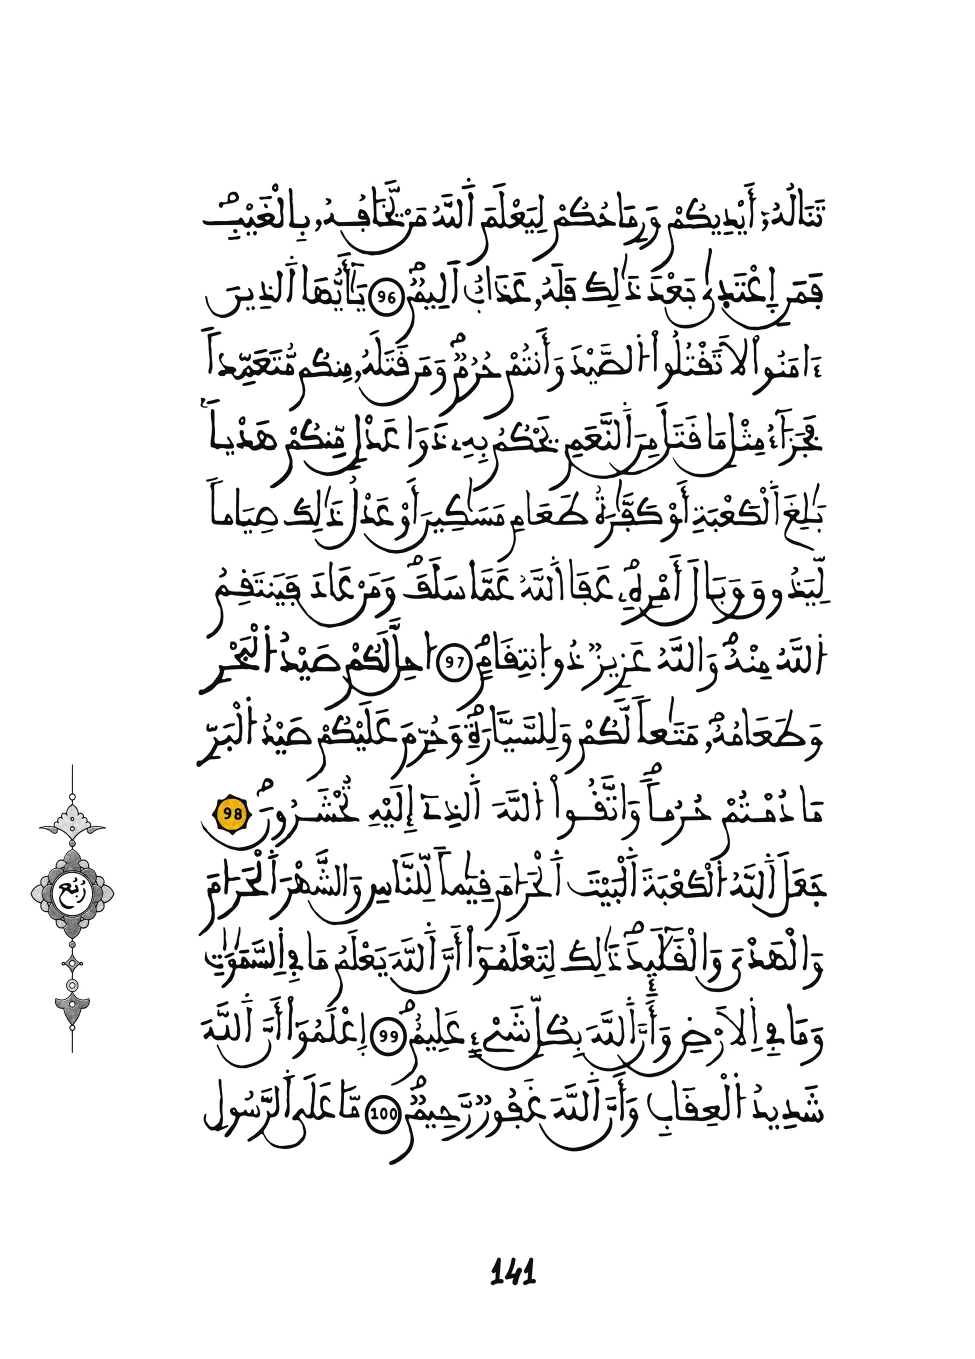 تَنَالُهُۥٓ أَيْدِيكُمْ وَرِمَاحُكُمْ لِيَعْلَمَ اَ۬للَّهُ مَنْ يَّخَافُهُۥ بِالْغَيْبِۖ
فَمَنِ اِ۪عْتَد۪يٰ بَعْدَ ذَٰلِكَ فَلَهُۥ عَذَابٌ اَلِيمٞۖ 96 يَٰٓأَيُّهَا اَ۬لذِينَ
ءَامَنُواْ لَا تَقْتُلُواْ اُ۬لصَّيْدَ وَأَنتُمْ حُرُمٞۖ وَمَن قَتَلَهُۥ مِنكُم مُّتَعَمِّداٗ
فَجَزَآءُ مِثْلِ مَا قَتَلَ مِنَ اَ۬لنَّعَمِ يَحْكُمُ بِهِۦ ذَوَا عَدْلٖ مِّنكُمْ هَدْياَۢ
بَٰلِغَ اَ۬لْكَعْبَةِ أَوْ كَفَّٰرَةُ طَعَامِ مَسَٰكِينَ أَوْ عَدْلُ ذَٰلِكَ صِيَاماٗ
لِّيَذُوقَ وَبَالَ أَمْرِهِۦۖ عَفَا اَ۬للَّهُ عَمَّا سَلَفَۖ وَمَنْ عَادَ فَيَنتَقِمُ
اُ۬للَّهُ مِنْهُۖ وَاللَّهُ عَزِيزٞ ذُو اُ۪نتِقَامٍۖ 97 اُ۟حِلَّ لَكُمْ صَيْدُ اُ۬لْبَحْرِ
وَطَعَامُهُۥۖ مَتَٰعاٗ لَّكُمْ وَلِلسَّيَّارَةِۖ وَحُرِّمَ عَلَيْكُمْ صَيْدُ اُ۬لْبَرِّ
مَا دُمْتُمْ حُرُماٗۖ وَاتَّقُواْ اُ۬للَّهَ اَ۬لذِےٓ إِلَيْهِ تُحْشَرُونَۖ 98
جَعَلَ اَ۬للَّهُ اُ۬لْكَعْبَةَ اَ۬لْبَيْتَ اَ۬لْحَرَامَ قِيَٰماٗ لِّلنَّاسِ وَالشَّهْرَ اَ۬لْحَرَامَ
وَالْهَدْيَ وَالْقَلَٰٓئِدَۖ ذَٰلِكَ لِتَعْلَمُوٓاْ أَنَّ اَ۬للَّهَ يَعْلَمُ مَا فِے اِ۬لسَّمَٰوَٰتِ
وَمَا فِے اِ۬لَارْضِ وَأَنَّ اَ۬للَّهَ بِكُلِّ شَےْءٍ عَلِيمٌۖ 99 اِ۪عْلَمُوٓاْ أَنَّ اَ۬للَّهَ
شَدِيدُ اُ۬لْعِقَابِ وَأَنَّ اَ۬للَّهَ غَفُورٞ رَّحِيمٞۖ 100 مَّا عَلَي اَ۬لرَّسُولِ
ربع
141